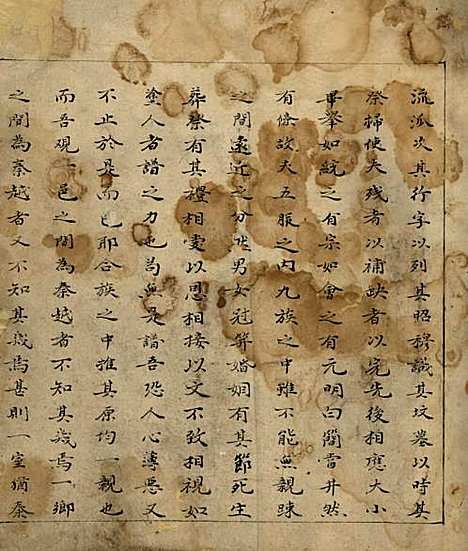 流派次其行字以列其昭穆識其坟墓以時其
祭掃使夫残者以補缺者以完先後相應大小
畢举如統之有宗如會之有元明白簡當井然
有條故夫五服之内九族之中雖不能無親踈
之間遠近之分然男女冠笄婚姻有其節死生
葬祭有其禮相愛以恩相接以文不致相視如
塗人者譜之力也苟無是譜吾恐人心薄惡又
不止於是而已耶合族之中推其原均一親也
而吾視一邑之間為秦越者不知其幾焉一鄉
之間為秦越者又不知其幾焉甚則一室猶秦